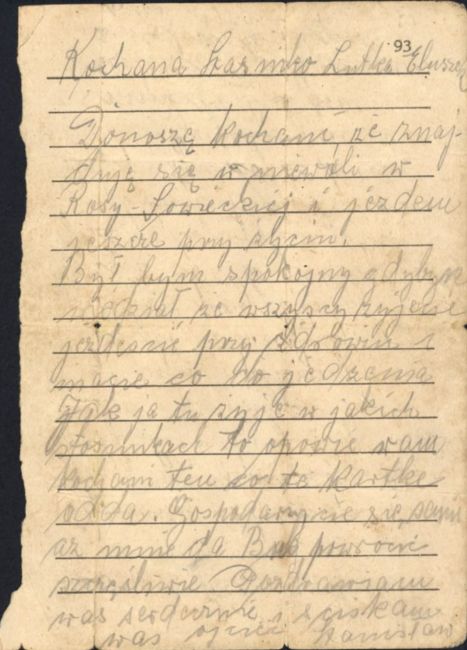 93
Kochana Kazińko Lutka Eluszek
Donoszę kochani że znaj-
duję się w niewoli w
Rosy-Sowieckiej i jezdem
jeszcze przy życiu.
Był bym spokojny gdybym
wiedział że wszyscy żyjecie
jezdeście przy zdrowiu i
macie co do jedzenia
Jak ja tu żyję w jakich
stosunkach to opowie wam
kochani ten co te kartke
odda. Gospodarujcie się sami
aż mnie da Bóg powrócić
szczęśliwie Pozdrawiam
was serdecznie i ściskam
was ojciec Stanisław